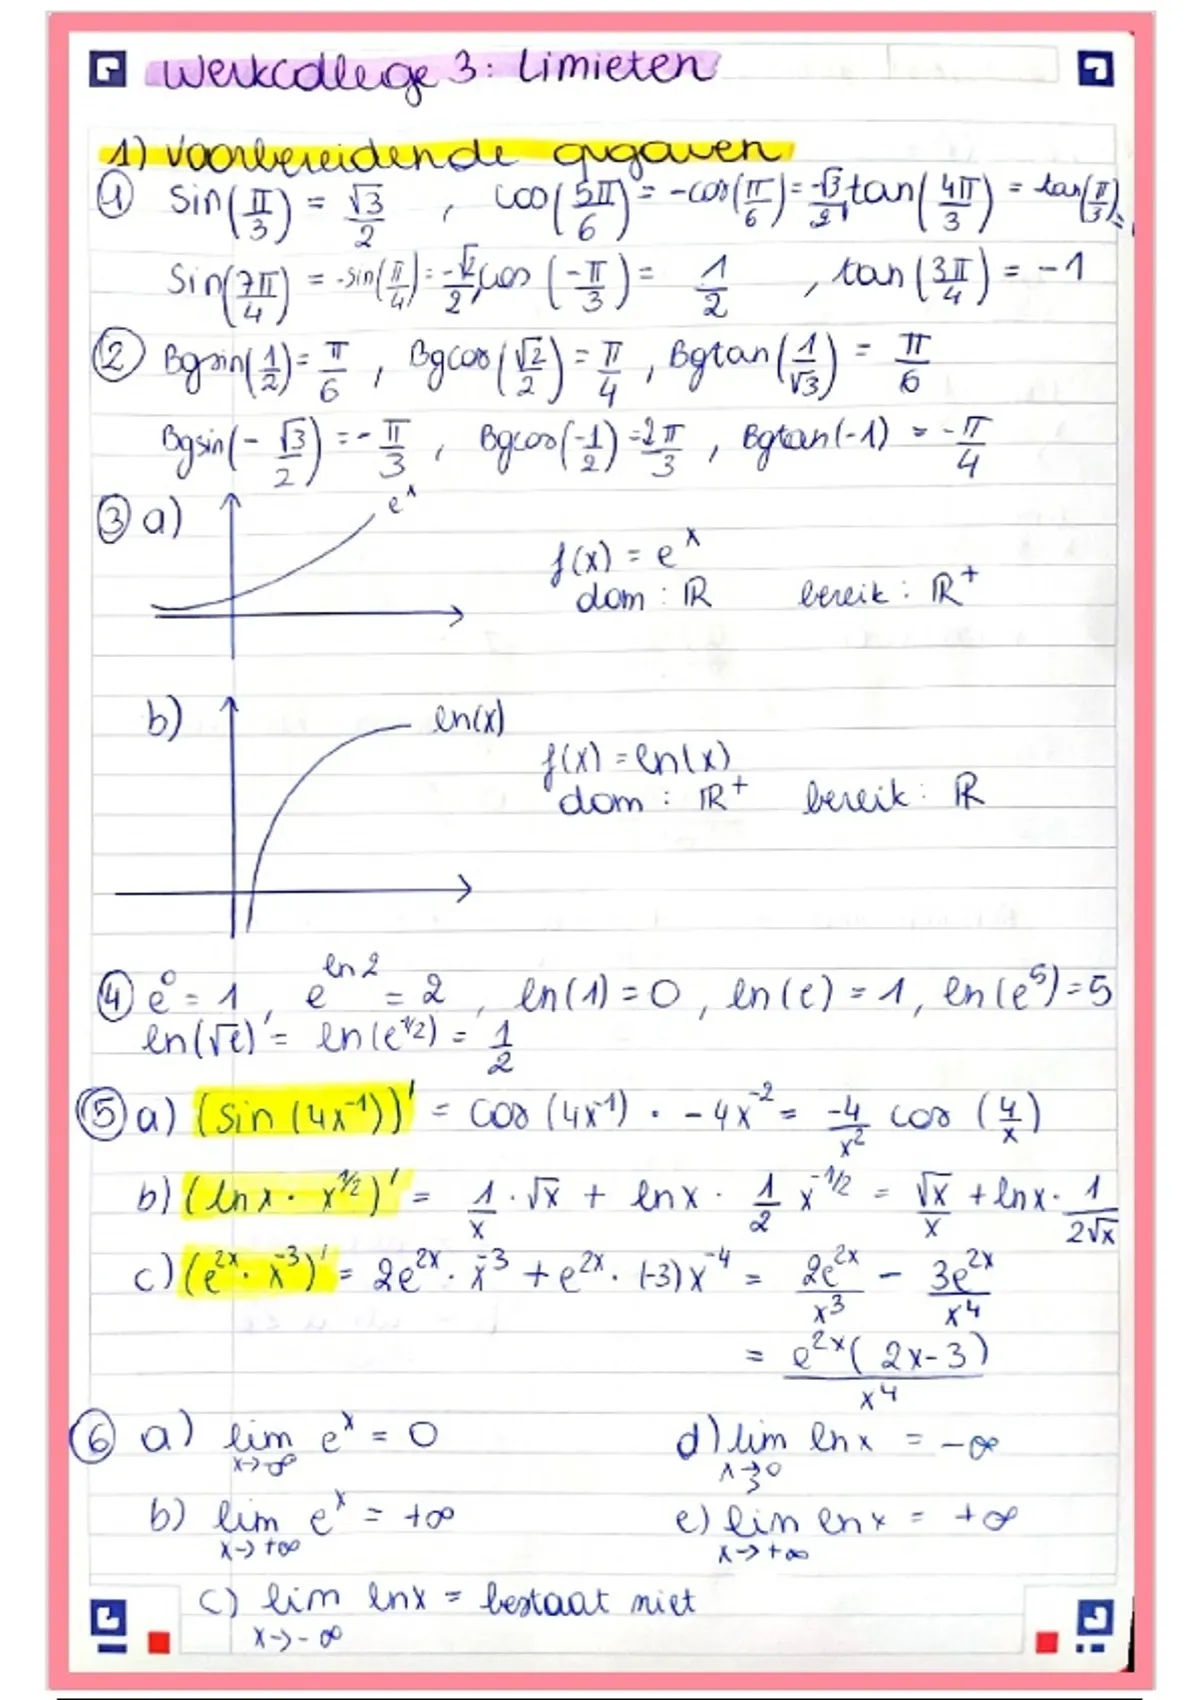 Werkcollege 3: Limieten
1) Voorbereidende opgaven
① Sin(π/3) = √3/2 , cos(5π/6) = -cos(π/6) = -√3/2, tan(4π/3) = tan(π/3) =
Sin(7π/4) = -sin(π/4) = -√2/2, cos(-π/3) = 1/2 , tan(3π/4) = -1
② Bgsin(1/2) = π/6 , Bgcos(√2/2) = π/4 , Bgtan(1/√3) = π/6
Bgsin(-√3/2) = -π/3 , Bgcos(-1/2) = 2π/3 , Bgtan(-1) = -π/4
③ a) eˣ
f(x) = eˣ
dom : ℝ bereik : ℝ⁺
b) ln(x)
f(x) = ln(x)
dom : ℝ⁺ bereik : ℝ
④ e⁰ = 1 , e^(ln 2) = 2 , ln(1) = 0 , ln(e) = 1 , ln(e⁵) = 5
ln(√e) = ln(e^(1/2)) = 1/2
⑤ a) (sin (4x⁻¹))' = cos (4x⁻¹) · -4x⁻² = -4/x² cos (4/x)
b) (ln x · x^(1/2))' = 1/x · √x + ln x · 1/2 x^(-1/2) = √x/x + ln x · 1/(2√x)
c) (e²ˣ · x⁻³)' = 2e²ˣ · x⁻³ + e²ˣ · (-3)x⁻⁴ = 2e²ˣ/x³ - 3e²ˣ/x⁴
= e²ˣ(2x-3)/x⁴
⑥ a) lim x→-∞ eˣ = 0 d) lim x→0 ln x = -∞
b) lim x→+∞ eˣ = +∞ e) lim x→+∞ ln x = +∞
c) lim x→-∞ ln x = bestaat niet